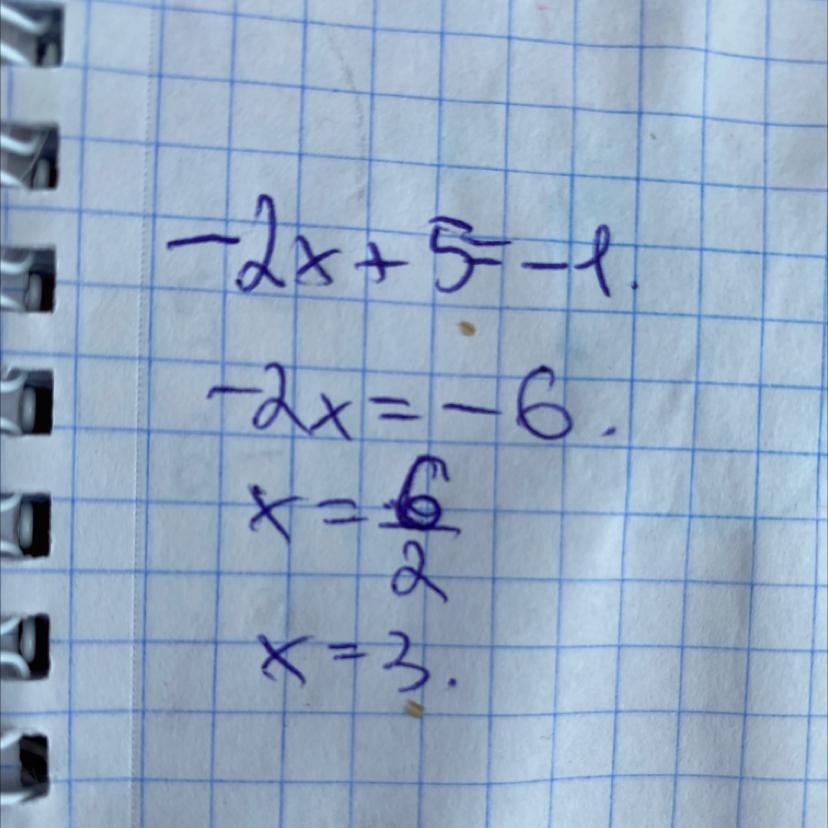 -2x + 5 = -1.
-2x = -6.
x = 6/2
x = 3.